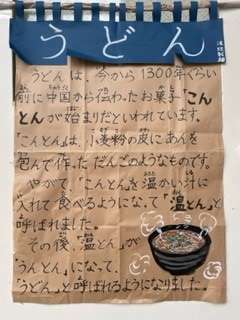 うどん
うどんは、今から1300年ぐらい
前に中国から伝わったお菓子「こん
とん」が始まりだといわれています。
「こんとん」は、小麦粉の皮にあんを
包んで作っただんごのようなものです。
やがて、「こんとん」を温かい汁に
入れて食べるようになって「温とん」と
呼ばれました。
その後、「温とん」が
「うんとん」になって、
「うどん」と呼ばれるようになりました。